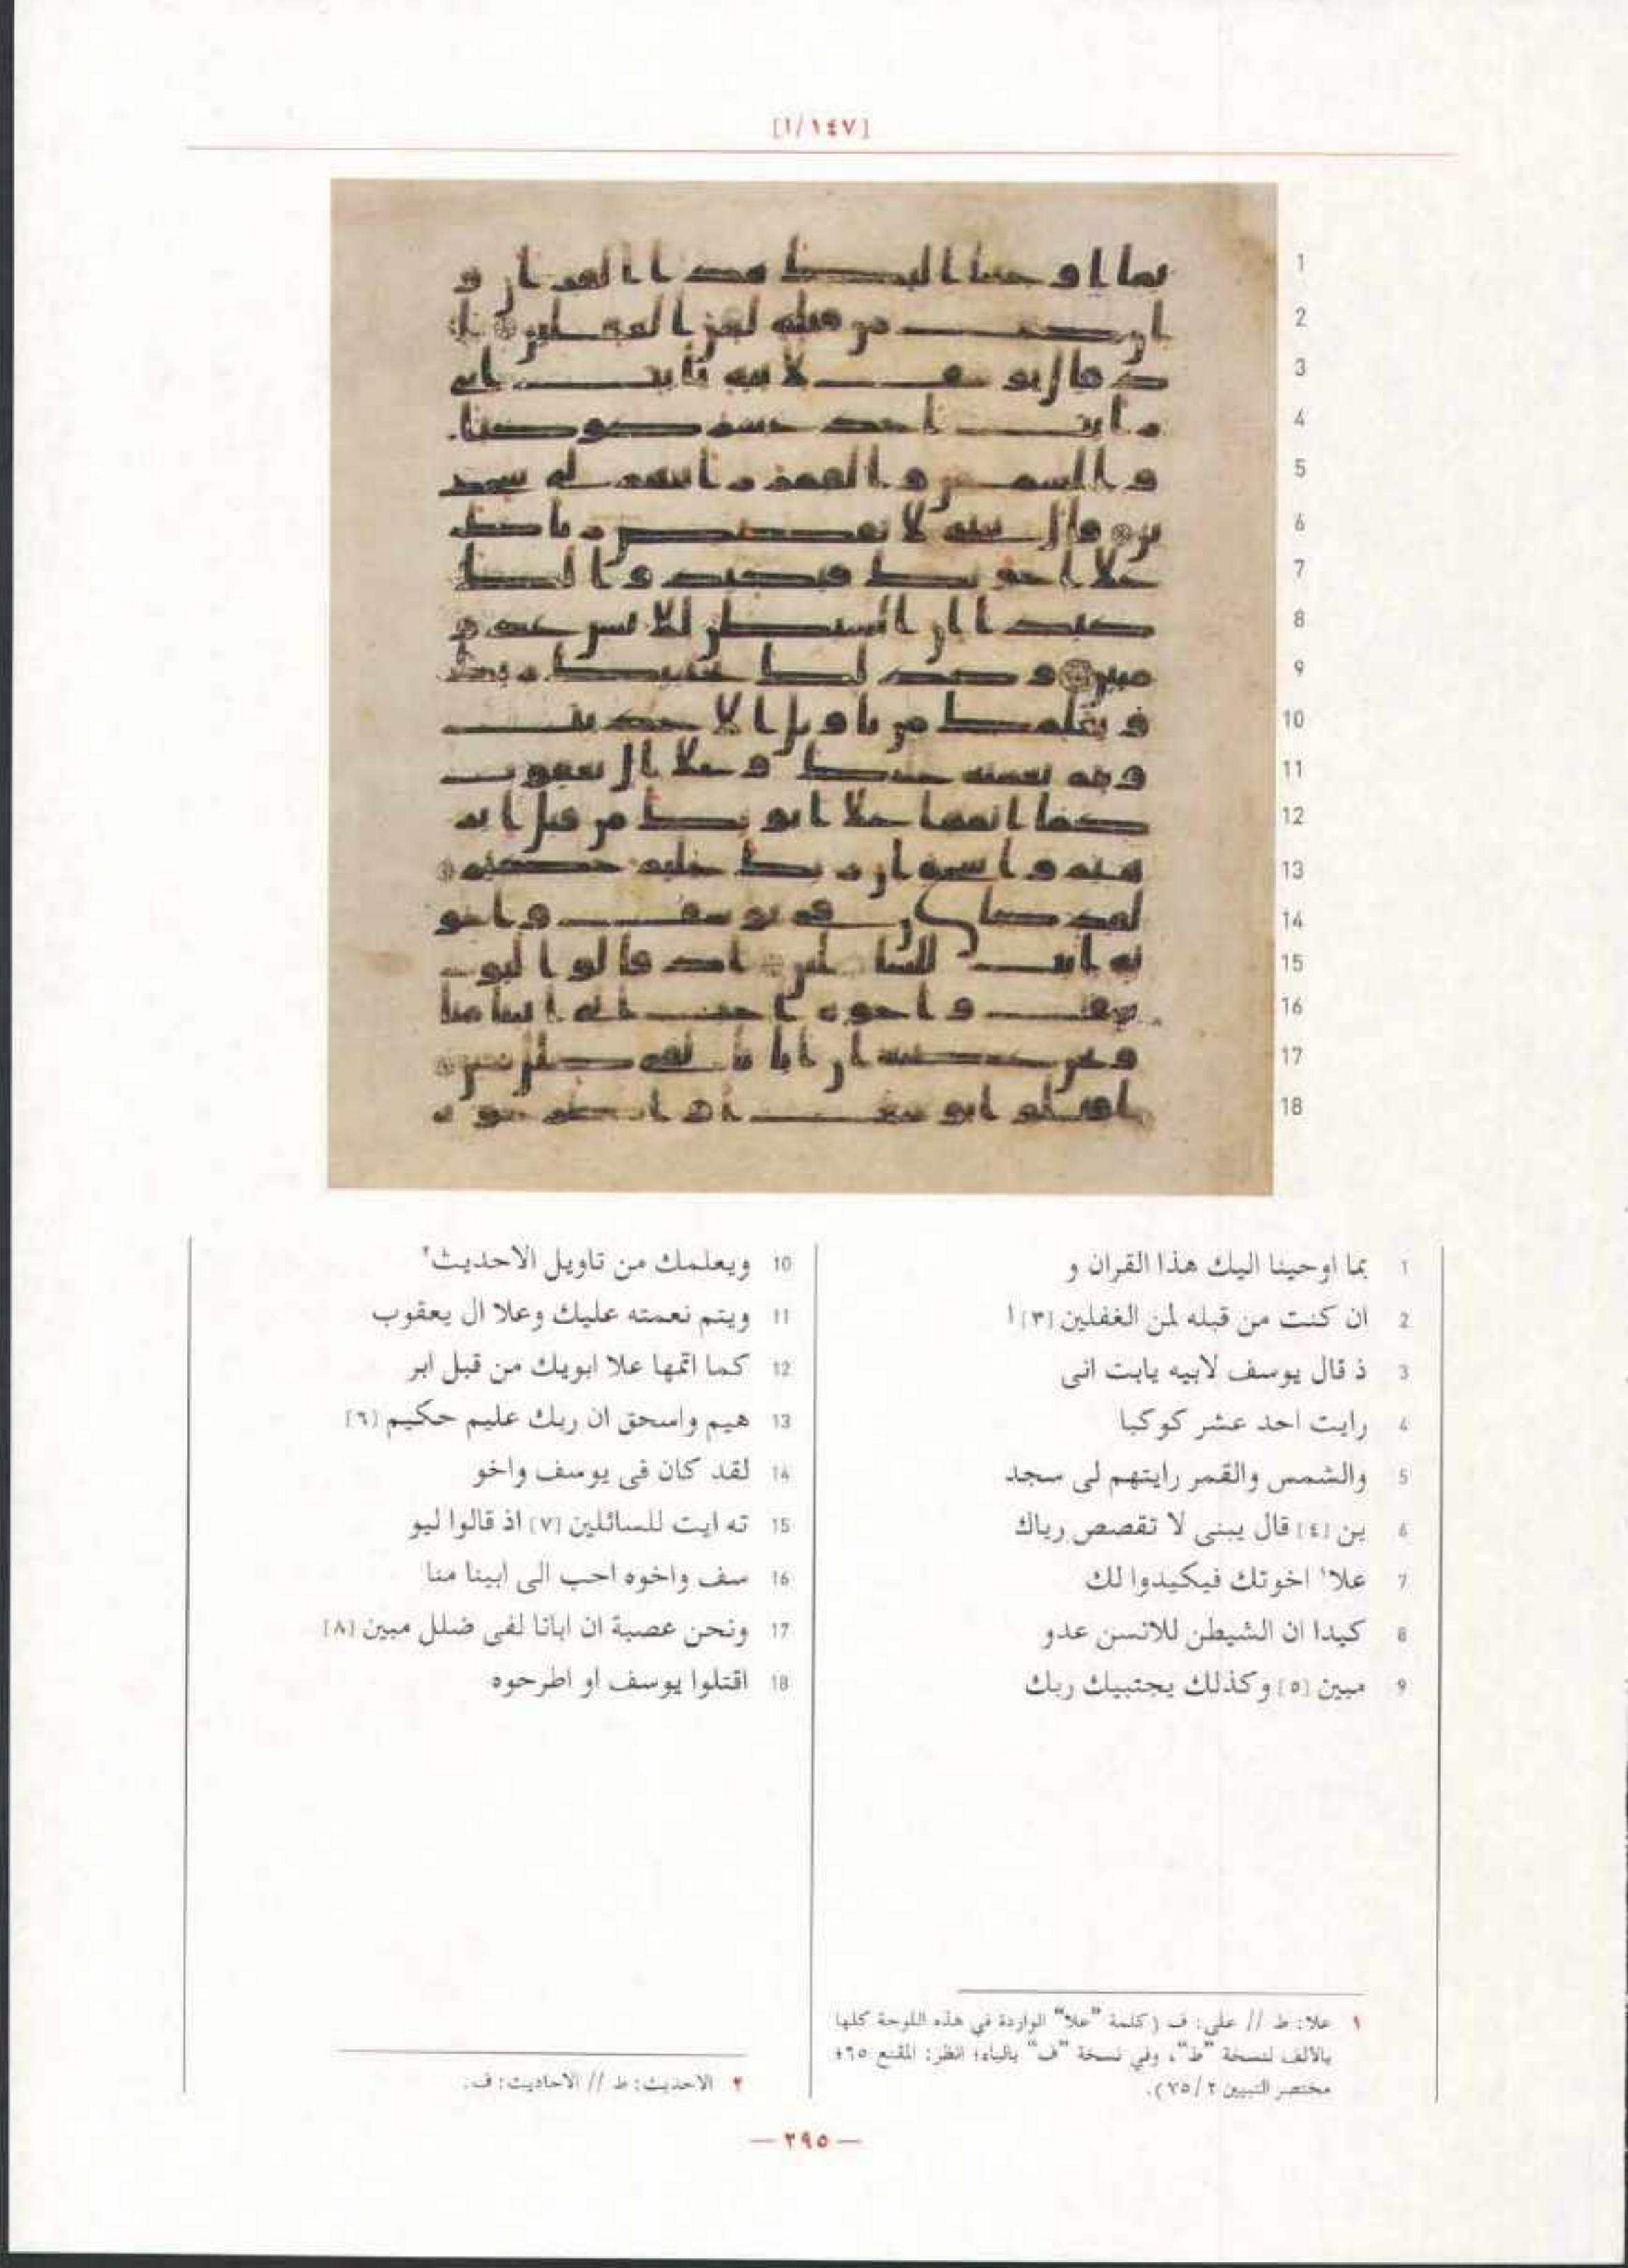 [١/١٤٧]
1
2
3
4
5
6
7
8
9
10
11
12
13
14
15
16
17
18
1 بما اوحينا اليك هذا القران و
2 ان كنت من قبله لمن الغفلين [٣] ا
3 ذ قال يوسف لابيه يابت انى
4 رايت احد عشر كوكبا
5 والشمس والقمر رايتهم لى سجد
6 ين [٤] قال يبنى لا تقصص رياك
7 علا١ اخوتك فيكيدوا لك
8 كيدا ان الشيطن للانسن عدو
9 مبين [٥] وكذلك يجتبيك ربك
10 ويعلمك من تاويل الاحديث٢
11 ويتم نعمته عليك وعلا ال يعقوب
12 كما اتمها علا ابويك من قبل ابر
13 هيم واسحق ان ربك عليم حكيم [٦]
14 لقد كان فى يوسف واخو
15 ته ايت للسائلين [٧] اذ قالوا ليو
16 سف واخوه احب الى ابينا منا
17 ونحن عصبة ان ابانا لفى ضلل مبين [٨]
18 اقتلوا يوسف او اطرحوه
١ علا: ط // على: ف (كلمة "علا" الواردة في هذه اللوحة كلها
بالألف لنسخة "ط"، وفي نسخة "ف" بالياء؛ انظر: المقنع ٦٥؛
مختصر التبيين ٢/ ٧٥).
٢ الاحديث: ط // الاحاديث: ف.
— ٢٩٥ —